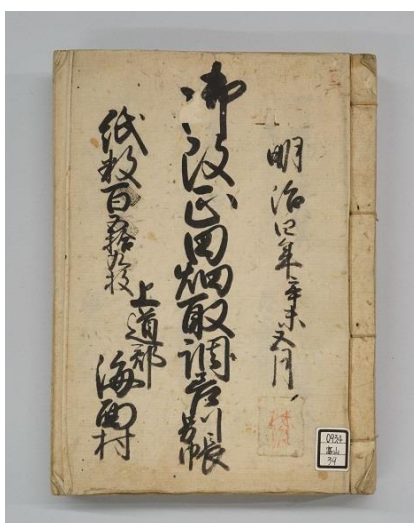 明治四年辛未文月
御改正田畑取調帳
紙数百五拾枚
上道郡
海面村
0934
富山
34